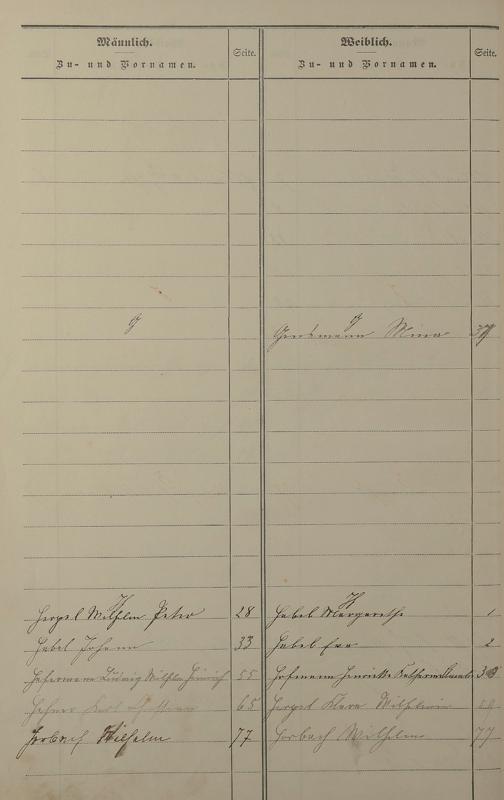 Männlich.
Zu- und Vornamen.
Seite.
Weiblich.
Zu- und Vornamen.
Seite.
G
G
Mina 37
H
H
Herpel Wilhelm Peter 28
Habel Margarethe 1
Habel Johann 33
Habel Eva 2
Ludwig Wilhelm Heinrich 55
Hofmann Henriette
Karl 65
Herpel Klara Wilhelmine
Horbach Wilhelm 77
Horbach Wilhelm 77